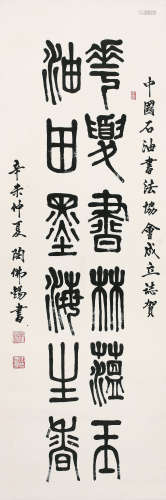 中國石油書法協會成立誌賀
華夏書林蘊玉
油田墨海生香
辛未仲夏陶佛錫書